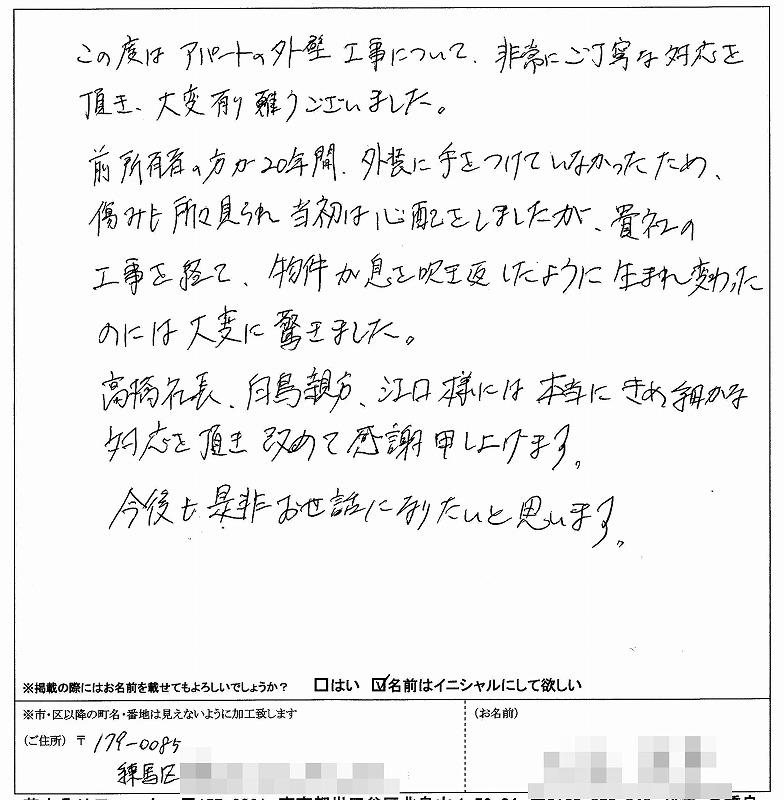 この度は アパートの外壁 工事について、非常にご丁寧な対応を
頂き、大変有り難うございました。
前所有者の方が20年間、外装に手をつけていなかったため、
傷みも所々見られ当初は心配をしましたが、貴社の
工事を経て、物件が息を吹き返したように生まれ変わった
のには大変に驚きました。
高橋社長、白鳥親方、江口様には本当にきめ細かな
対応を頂き改めて感謝申し上げます。
今後も是非お世話になりたいと思います。
※掲載の際にはお名前を載せてもよろしいでしょうか？ □はい ☑名前はイニシャルにして欲しい
※市・区以降の町名・番地は見えないように加工致します
（ご住所）〒 179-0085
練馬区
（お名前）